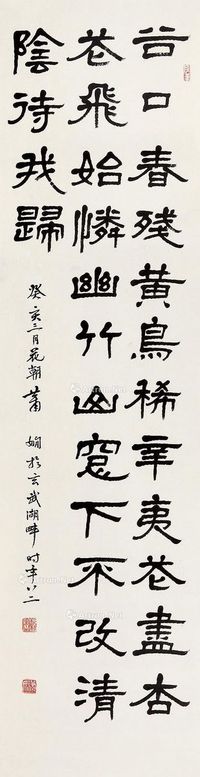 谷口春殘黃鳥稀辛夷花盡杏
花飛始憐幽竹山窗下不改清
陰待我歸
癸亥三月花朝蕭
嫻於玄武湖畔時年八二